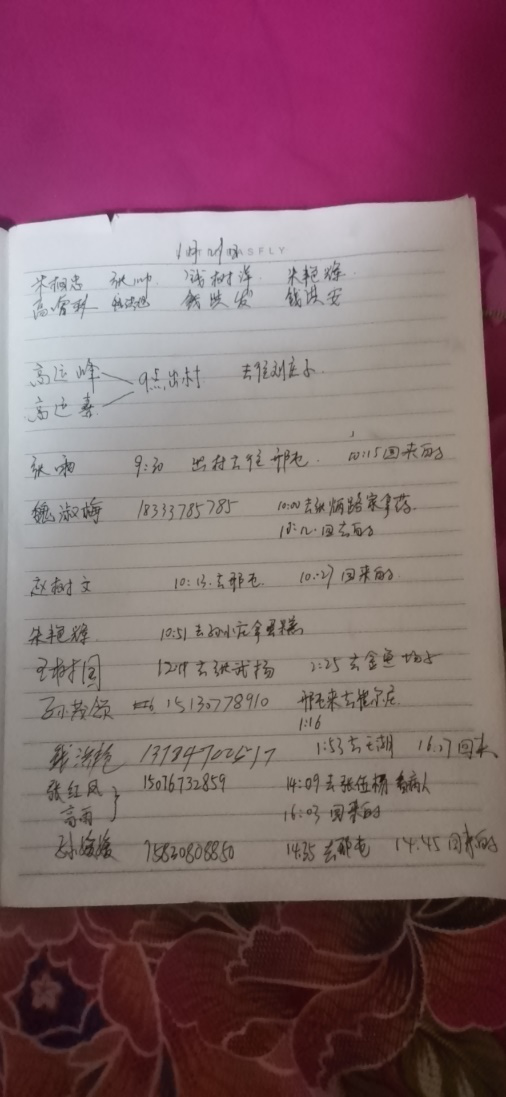 SFLY
张帅 钱树洋 朱艳辉
钱洪发 钱洪安
高运峰 9点出村 去往刘庄子
高迎春
张 9:30 出村去往邢屯 10:15回来的
魏淑梅 18333785785 10:00去张炳路家拿药
10:12回去的
赵树文 10:13去邢屯 10:27回来的
朱艳辉 10:51去孙小庄拿蛋糕
王树国 12:19去张武杨 2:25去金鱼场子
孙茂领 15130778910 邢屯来去崔尔庄
1:16
钱洪艳 13784702517 1:53去王湖 16:27回来
张红凤 15076732859 14:09去张伍杨看病人
高雨 16:03回来的
孙媛媛 15830808850 14:35去邢屯 14:45回来的